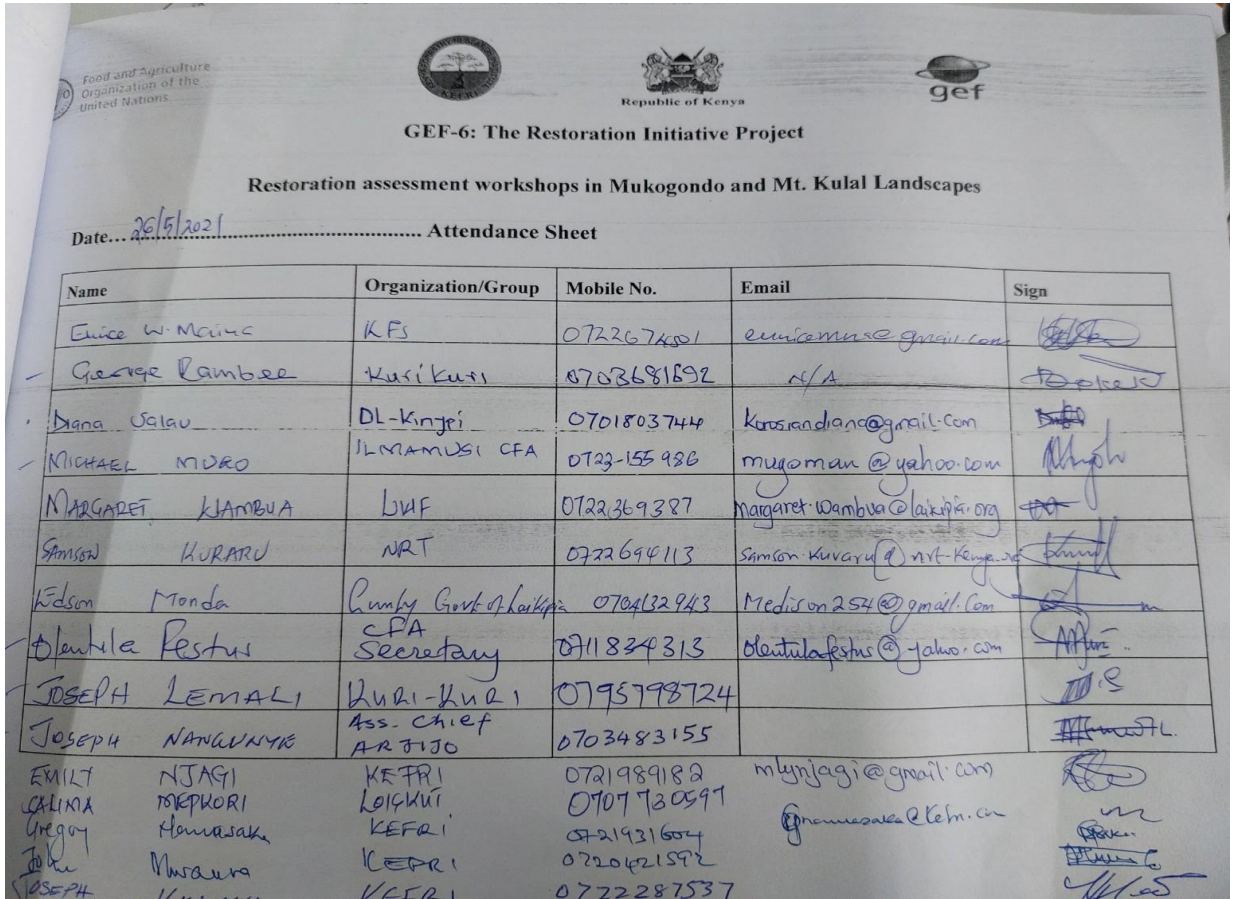 Food and Agriculture
Organization of the
United Nations
KEFRI
Republic of Kenya
gef
GEF-6: The Restoration Initiative Project
Restoration assessment workshops in Mukogondo and Mt. Kulal Landscapes
Date... 26/5/2021 ........ Attendance Sheet
Name Organization/Group Mobile No. Email Sign
Eunice W. Maina KFS 0722674501
George Rambee Kuri Kuri 0703681692 N/A
Diana DL-Kinjei 0701803744 Korosiandiana@gmail.com
MICHAEL MURO ILMAMUSI CFA 0722-155 986 mugoman@yahoo.com
MARGARET WAMBUA LWF 0722369387 margaret.wambua@laikipia.org
SAMSON KURARU NRT 0722694113
Edson Monda County Govt of Laikipia 0704132943 Medison254@gmail.com
Olentula Festus CFA Secretary 0711834313 olentulafestus@yahoo.com
JOSEPH LEMALI KURI-KURI 0795798724
JOSEPH Ass. Chief ARJIJO 0703483155
EMILY NJAGI KEFRI 0721989182 mlynjagi@gmail.com
SALINA 0707730597
Gregory Hamasaka KEFRI 0721931604
John Mwaura KEFRI 0720421592
JOSEPH KEFRI 0722287537